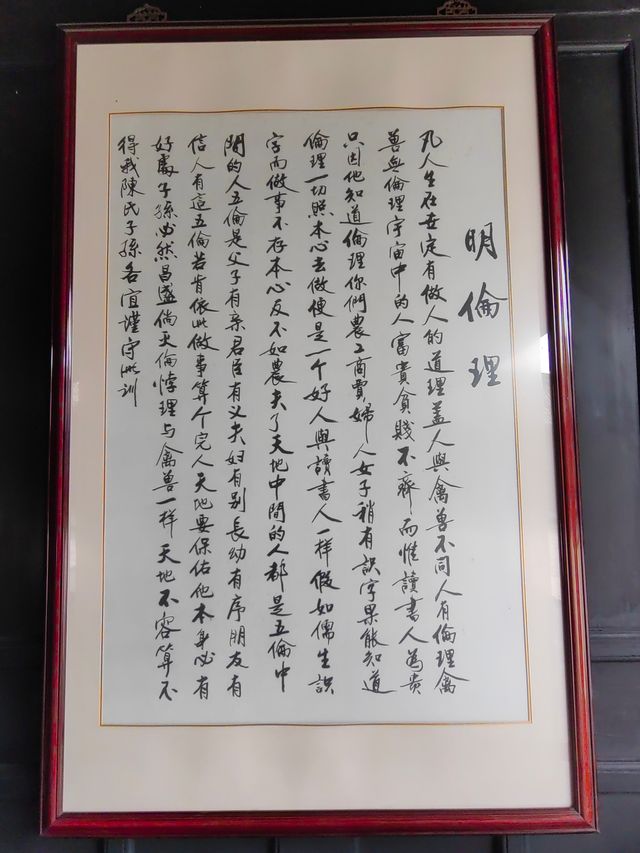 明倫理
凡人生在世定有做人的道理蓋人與禽獸不同人有倫理禽
獸無倫理宇宙中的人富貴貧賤不齊而惟讀書人為貴
只因他知道倫理你們農工商賈婦人女子稍有識字果能知道
倫理一切照本心去做便是一个好人與讀書人一样假如儒生識
字而做事不存本心反不如農夫了天地中間的人都是五倫中
間的人五倫是父子有亲君臣有义夫妇有别長幼有序朋友有
信人有這五倫若肯依此做事算个完人天地要保佑他本身必有
好處子孫必然昌盛倘夭倫悖理与禽獸一样天地不容算不
得我陳氏子孫各宜謹守此訓